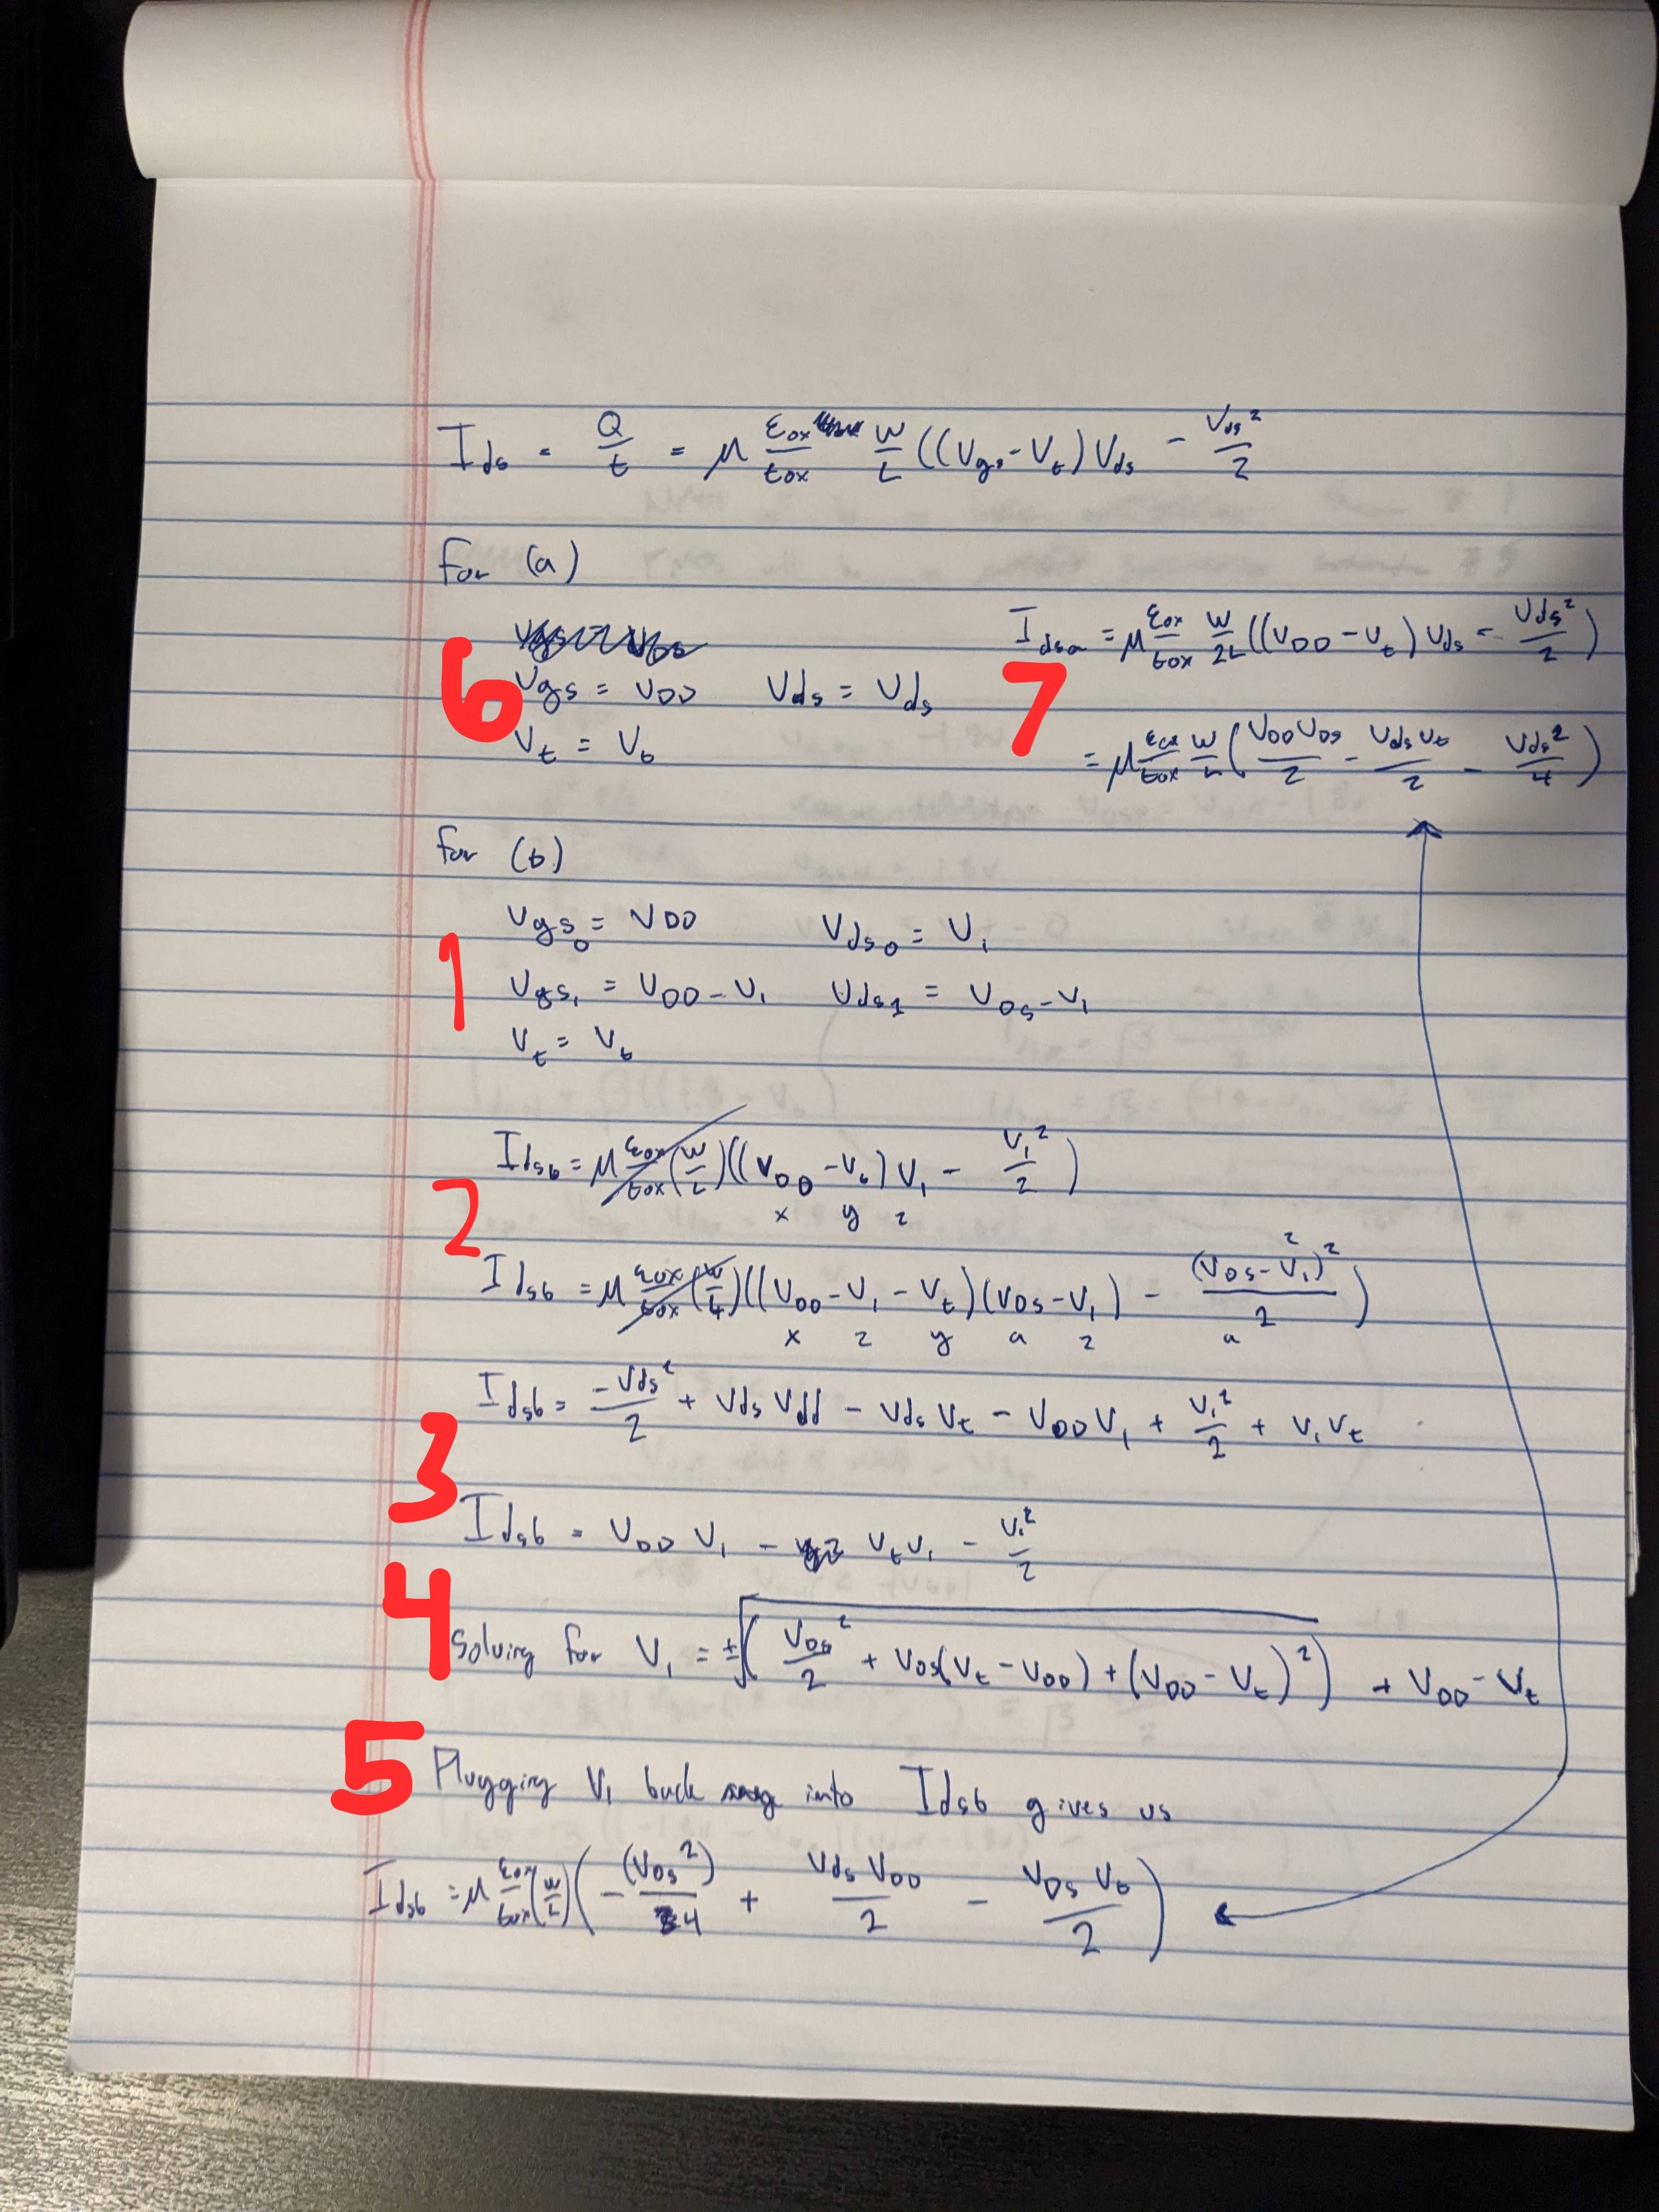 Ids = Q/t = μ εox/tox W/L ((Vgs - Vt) Vds - Vds²/2
for (a)
Idsa = μ εox/tox W/2L ((VDD - Vt) Vds - Vds²/2)
6 Vgs = VDD Vds = Vds 7
Vt = Vt
= μ εox/tox W/L (VDD VDS/2 - Vds Vt/2 - Vds²/4)
for (b)
Vgs0 = VDD Vds0 = V1
1 Vgs1 = VDD - V1 Vds1 = VDS - V1
Vt = Vt
Idsb = μ εox/tox (W/L)((VDD - Vt) V1 - V1²/2)
x y z
2
Idsb = μ εox/tox (W/L)((VDD - V1 - Vt)(VDS - V1) - (VDS - V1)²/2)
x z y a z a z
Idsb = -Vds²/2 + Vds Vdd - Vds Vt - VDD V1 + V1²/2 + V1 Vt
3
Idsb = VDD V1 - Vt V1 - V1²/2
4 Solving for V1 = ±√(VDS²/2 + VDS(Vt - VDD) + (VDD - Vt)²) + VDD - Vt
5 Plugging V1 back into Idsb gives us
Idsb = μ εox/tox (W/L)(-(VDS²)/4 + Vds VDD/2 - VDS Vt/2)